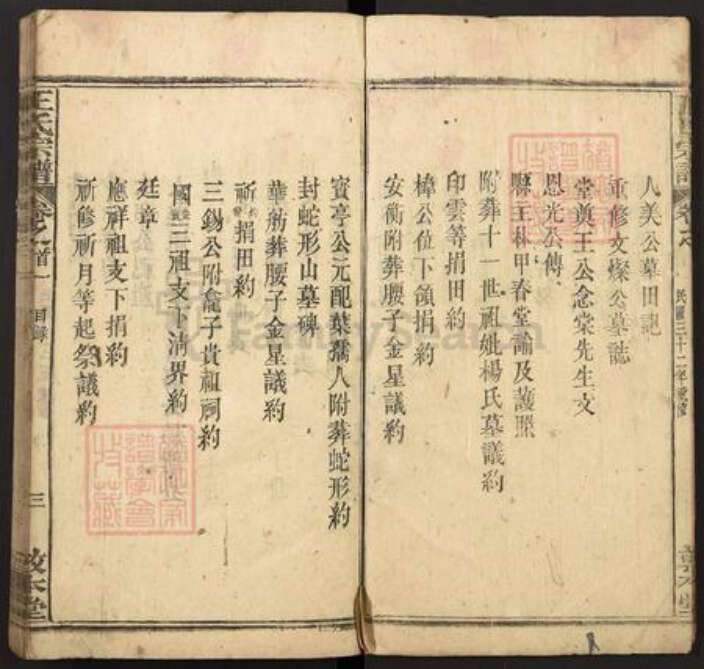 人美公墓田記
重修文燦公墓誌
堂奠王公念棠先生文
恩光公傳
縣主林甲春堂諭及護照
附葬十一世祖妣楊氏墓議約
印雲等捐田約
樟公位下領捐約
安衡附葬腰子金星議約
民國三十二年
賓亭公元配葉孺人附葬蛇形約
封蛇形山墓碑
華舫葬腰子金星議約
祈捐田約
三錫公附龕子貴祖祠約
國三祖支下清界約
廷章
應祥祖支下捐約
祈修祈月等起祭議約
王氏宗譜
卷之首一
目錄
三
敦本堂
FamilySearch